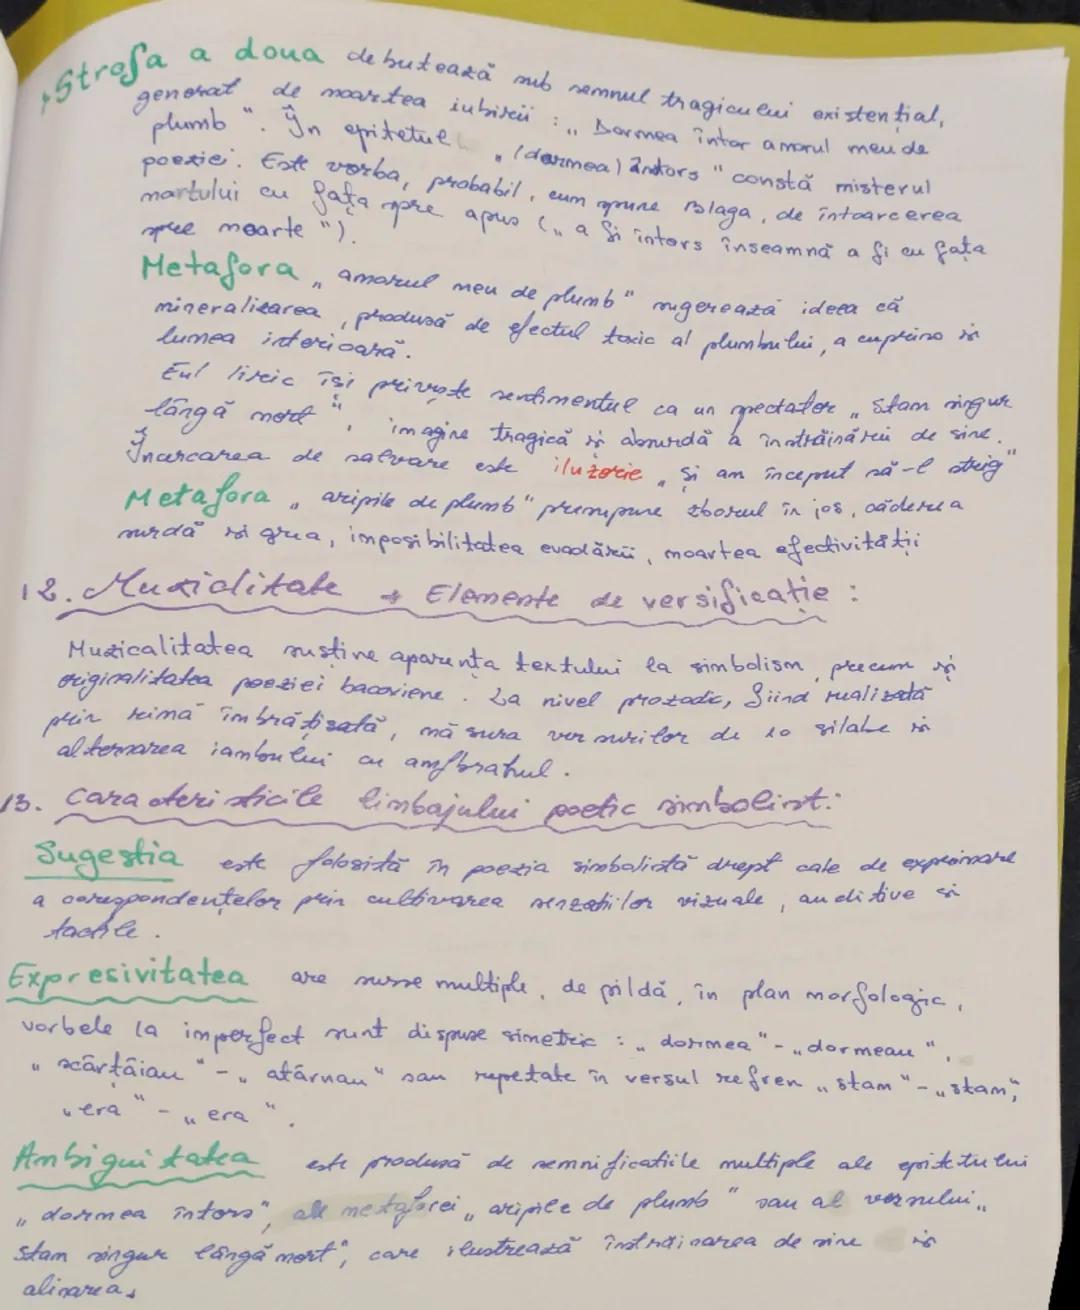 Strofa a doua debutează sub semnul tragicului existențial,
generat de moartea iubirii : „ Dormea întor amorul meu de
plumb ". În epitetul „ (dormea) întors " constă misterul
poeziei. Este vorba, probabil, cum spune Blaga, de întoarcerea
mortului cu fața spre apus („ a fi întors înseamnă a fi cu fața
spre moarte ").
Metafora „ amorul meu de plumb" sugerează ideea că
mineralizarea, produsă de efectul toxic al plumbului, a cuprins și
lumea interioară.
Eul liric își privește sentimentul ca un spectator „ Stam singur
lângă mort ", imagine tragică și absurdă a înstrăinării de sine.
Încercarea de salvare este iluzorie „ Și am început să-l strig"
Metafora „ aripile de plumb" presupune zborul în jos, căderea
surdă și grea, imposibilitatea evadării, moartea efectivității
12. Muzicalitate → Elemente de versificație :
Muzicalitatea susține aparența textului la simbolism, precum și
originalitatea poeziei bacoviene. La nivel prozodic, fiind realizată
prin rimă îmbrățișată, măsura versurilor de 10 silabe și
alternarea iambului cu amfibrahul.
13. Caracteristicile limbajului poetic simbolist:
Sugestia este folosită în poezia simbolistă drept cale de exprimare
a corespondențelor prin cultivarea senzațiilor vizuale, auditive și
tactile.
Expresivitatea are surse multiple, de pildă, în plan morfologic,
verbele la imperfect sunt dispuse simetric : „ dormea" - „dormeau ",
„ scârțâiau " - „ atârnau" sau repetate în versul refren „ stam" - „stam";
„era " - „ era ".
Ambiguitatea este produsă de semnificațiile multiple ale epitetului
„ dormea întors", ale metaforei „ aripile de plumb " sau al versului „
Stam singur lângă mort", care ilustrează înstrăinarea de sine și
alinarea.